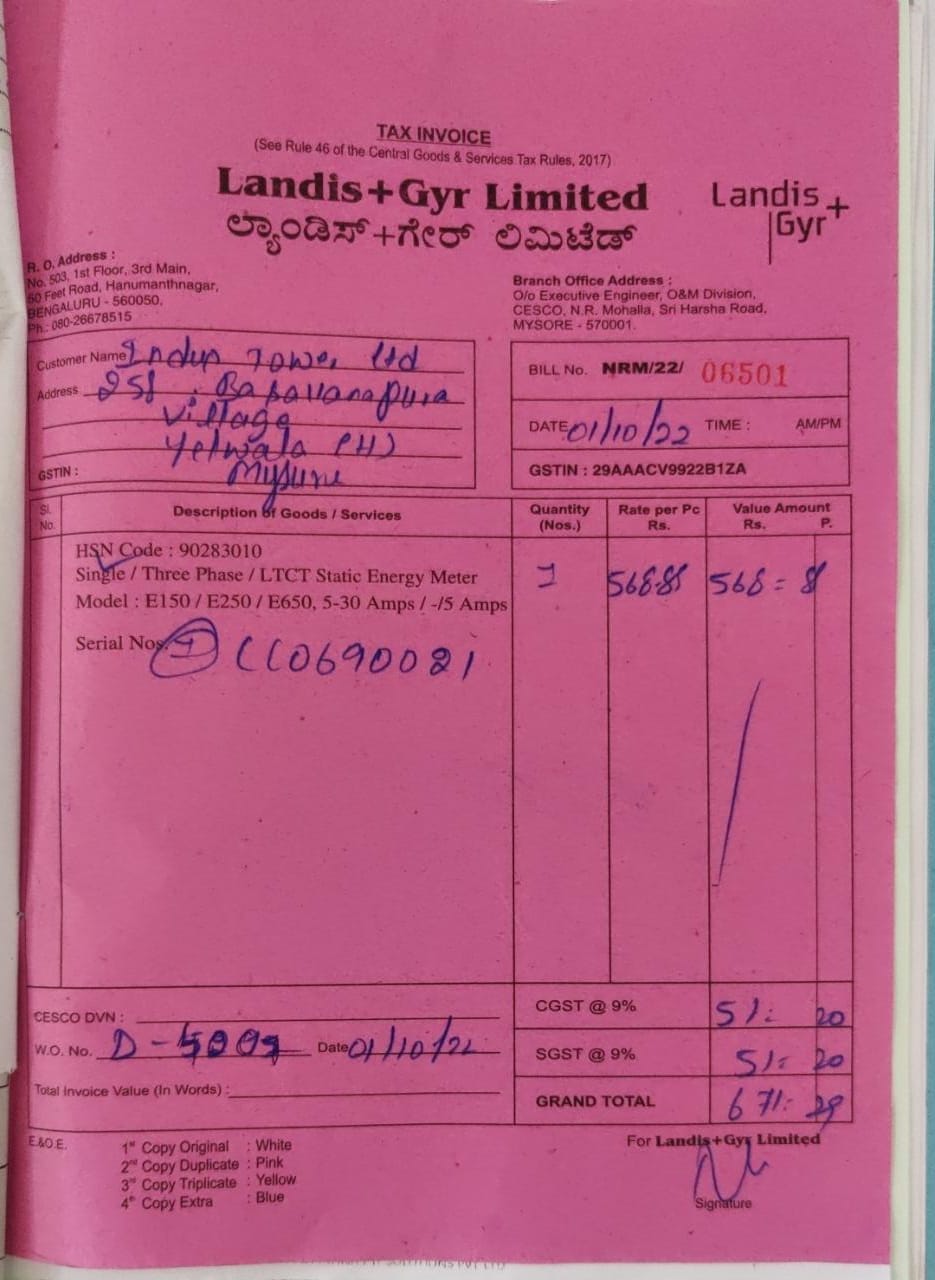 TAX INVOICE
(See Rule 46 of the Central Goods & Services Tax Rules, 2017)
Landis+Gyr Limited
ಲ್ಯಾಂಡಿಸ್+ಗೇರ್ ಲಿಮಿಟೆಡ್
Landis
Gyr+
R. O. Address :
No. 503, 1st Floor, 3rd Main,
60 Feet Road, Hanumanthnagar,
BENGALURU - 560050.
Ph.: 080-26678515
Branch Office Address :
O/o Executive Engineer, O&M Division,
CESCO, N.R. Mohalla, Sri Harsha Road,
MYSORE - 570001.
Customer Name Indus Tower Ltd
Address 258
Village
Yelwala (H)
GSTIN :
BILL No. NRM/22/ 06501
DATE 01/10/22 TIME : AM/PM
GSTIN : 29AAACV9922B1ZA
Sl. No. Description of Goods / Services Quantity (Nos.) Rate per Pc Rs. Value Amount Rs. P.
HSN Code : 90283010
Single / Three Phase / LTCT Static Energy Meter 1
Model : E150 / E250 / E650, 5-30 Amps / -/5 Amps
Serial Nos. 1 CC0690021
CESCO DVN :
W.O. No. Date 01/10/22
Total Invoice Value (In Words) :
CGST @ 9% 51: 20
SGST @ 9% 51: 20
GRAND TOTAL 671:
E.&O.E.
1st Copy Original : White
2nd Copy Duplicate : Pink
3rd Copy Triplicate : Yellow
4th Copy Extra : Blue
For Landis+Gyr Limited
Signature